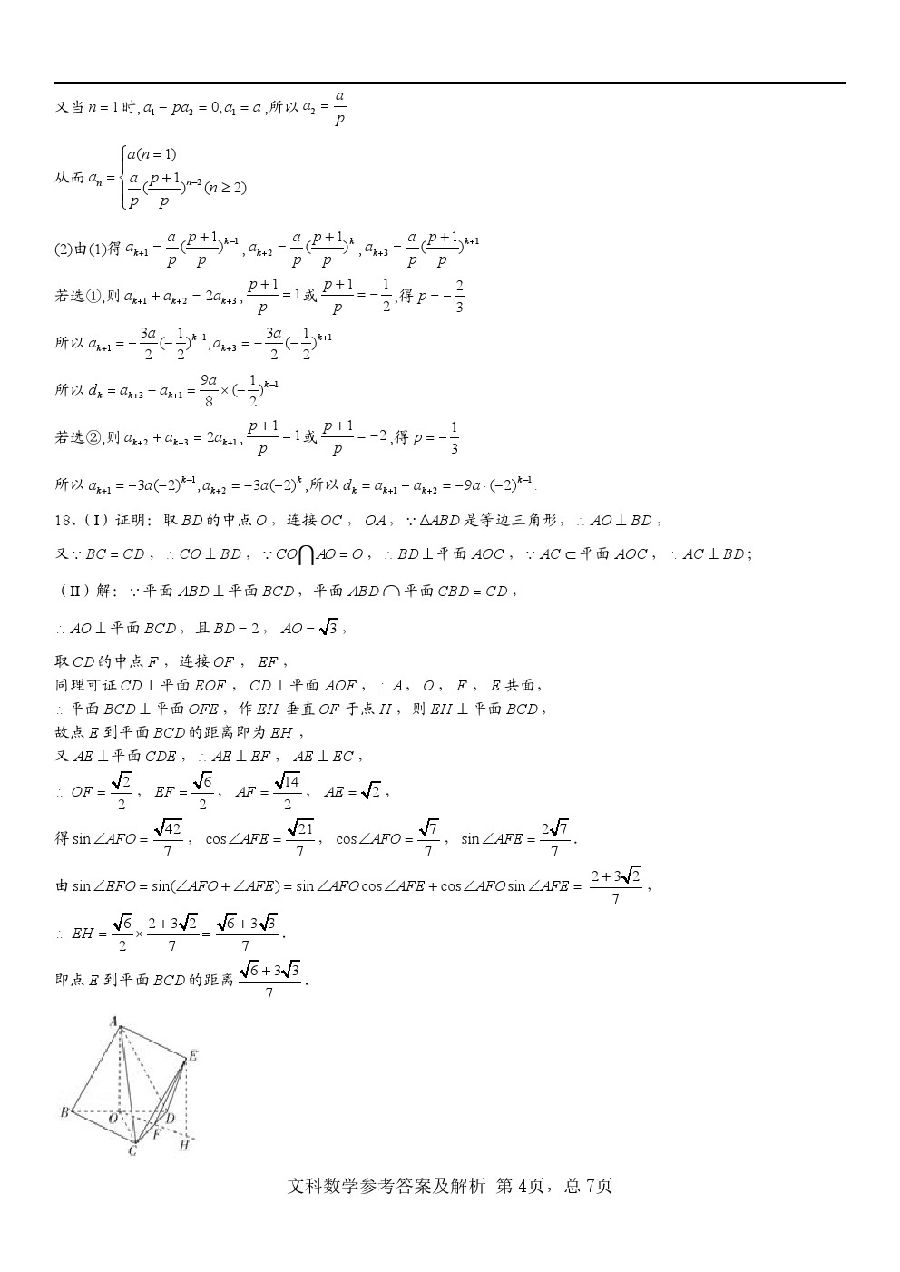 又当 n = 1 时, a₁ − pa₂ = 0, a₁ = a ,所以 a₂ = a/p
从而 aₙ = { a(n = 1)
a/p ((p+1)/p)ⁿ⁻² (n ≥ 2)
(2)由(1)得 aₖ₊₁ = a/p ((p+1)/p)ᵏ⁻¹ , aₖ₊₂ = a/p ((p+1)/p)ᵏ , aₖ₊₃ = a/p ((p+1)/p)ᵏ⁺¹
若选①,则 aₖ₊₁ + aₖ₊₂ = 2aₖ₊₃ , (p+1)/p = 1 或 (p+1)/p = −1/2 ,得 p = −2/3
所以 aₖ₊₁ = −3a/2 (−1/2)ᵏ⁻¹, aₖ₊₃ = −3a/2 (−1/2)ᵏ⁺¹
所以 dₖ = aₖ₊₃ − aₖ₊₁ = 9a/8 × (−1/2)ᵏ⁻¹
若选②,则 aₖ₊₂ + aₖ₊₃ = 2aₖ₊₁ , (p+1)/p = 1 或 (p+1)/p = −2 ,得 p = −1/3
所以 aₖ₊₁ = −3a(−2)ᵏ⁻¹, aₖ₊₂ = −3a(−2)ᵏ ,所以 dₖ = aₖ₊₁ − aₖ₊₂ = −9a · (−2)ᵏ⁻¹.
18.（I）证明：取 BD 的中点 O ，连接 OC ， OA ，∵ΔABD 是等边三角形，∴ AO ⊥ BD ，
又∵ BC = CD ，∴ CO ⊥ BD ，∵ CO⋂AO = O ，∴ BD ⊥ 平面 AOC ，∵ AC ⊂ 平面 AOC ，∴AC ⊥ BD；
（II）解：∵平面 ABD ⊥ 平面 BCD，平面 ABD ∩ 平面 CBD = CD ，
∴ AO ⊥ 平面 BCD，且 BD = 2 ， AO = √3 ，
取 CD 的中点 F ，连接 OF ， EF ，
同理可证 CD ⊥ 平面 EOF ， CD ⊥ 平面 AOF ，∴ A， O ， F ， E 共面，
∴ 平面 BCD ⊥ 平面 OFE ，作 EH 垂直 OF 于点 H ，则 EH ⊥ 平面 BCD，
故点 E 到平面 BCD 的距离即为 EH ，
又 AE ⊥ 平面 CDE ，∴ AE ⊥ EF ， AE ⊥ EC ，
∴ OF = √2/2 ， EF = √6/2 ， AF = √14/2 ， AE = √2 ，
得 sin∠AFO = √42/7 ， cos∠AFE = √21/7 ， cos∠AFO = √7/7 ， sin∠AFE = 2√7/7 ．
由 sin∠EFO = sin(∠AFO + ∠AFE) = sin∠AFO cos∠AFE + cos∠AFO sin∠AFE = (2+3√2)/7 ，
∴ EH = √6/2 × (2+3√2)/7 = (√6+3√3)/7 ．
即点 E 到平面 BCD 的距离 (√6+3√3)/7 ．
A
E
B
O
D
F
C
H
文科数学参考答案及解析 第 4页，总 7页